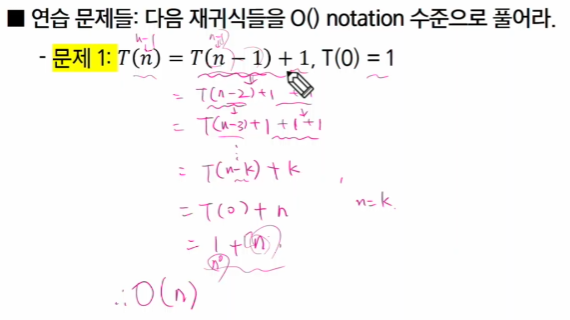 ■ 연습 문제들: 다음 재귀식들을 O() notation 수준으로 풀어라.
n-1 n-1
- 문제 1: T(n) = T(n − 1) + 1, T(0) = 1
= T(n-2)+1 +1
= T(n-3)+1+1+1
⋮
= T(n-k)+k
n=k.
= T(0)+n
= 1+n
n⁰
∴O(n)